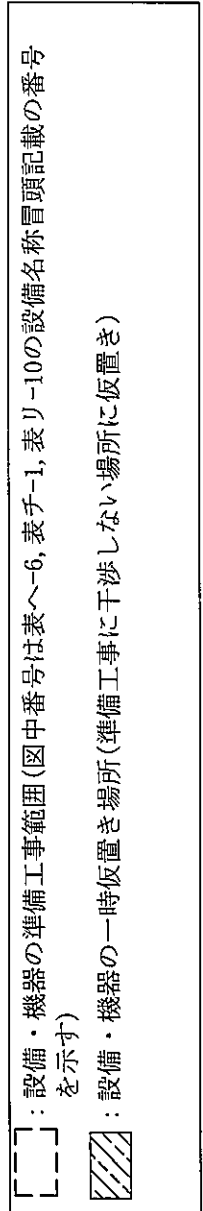 ：設備・機器の準備工事範囲(図中番号は表ヘ-6, 表チ-1, 表リ-10の設備名称冒頭記載の番号
を示す)
：設備・機器の一時仮置き場所(準備工事に干渉しない場所に仮置き)